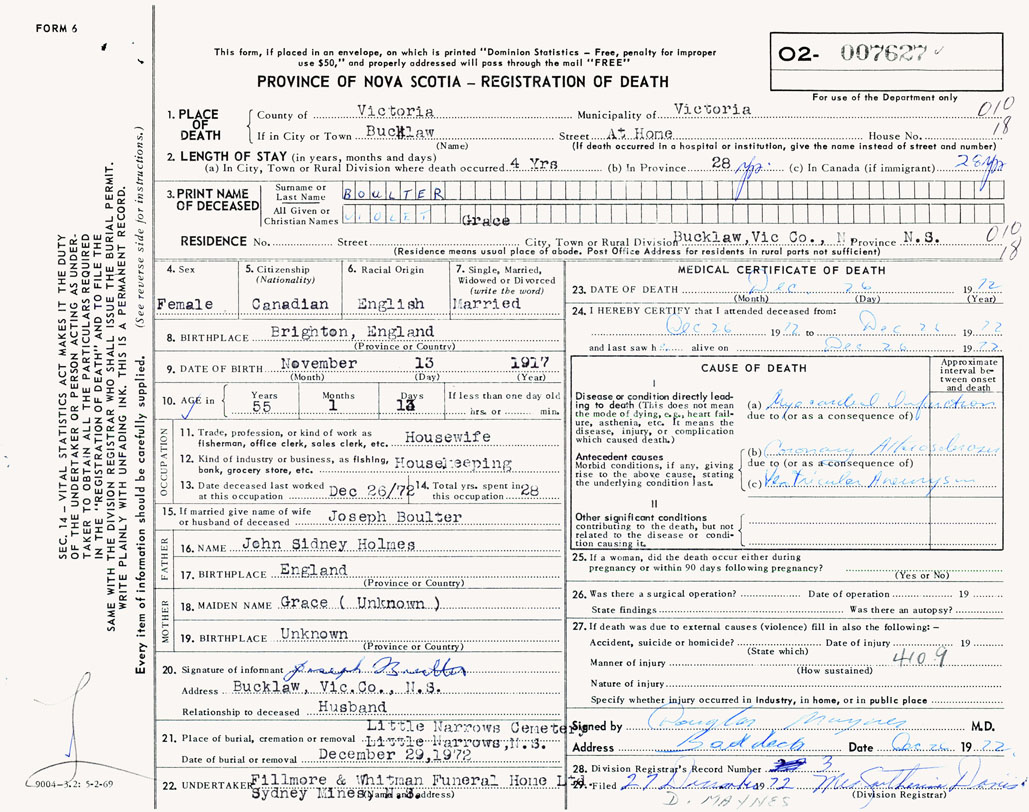 FORM 6
This form, if placed in an envelope, on which is printed "Dominion Statistics – Free, penalty for improper
use $50," and properly addressed will pass through the mail "FREE"
PROVINCE OF NOVA SCOTIA – REGISTRATION OF DEATH
02- 007627
For use of the Department only
1. PLACE OF DEATH County of Victoria Municipality of Victoria 010
If in City or Town Bucklaw Street At Home House No. 18
(Name) (If death occurred in a hospital or institution, give the name instead of street and number)
2. LENGTH OF STAY (in years, months and days)
(a) In City, Town or Rural Division where death occurred 4 Yrs (b) In Province 28 yrs. (c) In Canada (if immigrant) 28 yrs
3. PRINT NAME OF DECEASED Surname or Last Name BOULTER
All Given or Christian Names VIOLET Grace
RESIDENCE No. Street City, Town or Rural Division Bucklaw, Vic Co., N Province N.S. 010
(Residence means usual place of abode. Post Office Address for residents in rural parts not sufficient) 18
4. Sex Female
5. Citizenship (Nationality) Canadian
6. Racial Origin English
7. Single, Married, Widowed or Divorced (write the word) Married
8. BIRTHPLACE Brighton, England
(Province or Country)
9. DATE OF BIRTH November 13 1917
(Month) (Day) (Year)
10. AGE in Years 55 Months 1 Days 13 If less than one day old
hrs. or min.
OCCUPATION
11. Trade, profession, or kind of work as fisherman, office clerk, sales clerk, etc. Housewife
12. Kind of industry or business, as fishing, bank, grocery store, etc. Housekeeping
13. Date deceased last worked at this occupation Dec 26/72 14. Total yrs. spent in this occupation 28
15. If married give name of wife or husband of deceased Joseph Boulter
FATHER
16. NAME John Sidney Holmes
17. BIRTHPLACE England
(Province or Country)
MOTHER
18. MAIDEN NAME Grace ( Unknown )
19. BIRTHPLACE Unknown
(Province or Country)
20. Signature of informant Joseph Boulter
Address Bucklaw, Vic.Co., N.S.
Relationship to deceased Husband
21. Place of burial, cremation or removal Little Narrows Cemetery
Little Narrows, N.S.
Date of burial or removal December 29, 1972
22. UNDERTAKER Fillmore & Whitman Funeral Home Ltd
Sydney Mines, N.S.
(Name and address)
MEDICAL CERTIFICATE OF DEATH
23. DATE OF DEATH Dec 26 1972
(Month) (Day) (Year)
24. I HEREBY CERTIFY that I attended deceased from:
Dec 26 1972 to Dec 26 1972
and last saw h alive on Dec 26 1972
CAUSE OF DEATH
Approximate interval between onset and death
I
Disease or condition directly leading to death (This does not mean the mode of dying, e.g., heart failure, asthenia, etc. It means the disease, injury, or complication which caused death.)
(a) Myocardial Infarction
due to (or as a consequence of)
Antecedent causes
Morbid conditions, if any, giving rise to the above cause, stating the underlying condition last.
(b) Coronary Atherosclerosis
due to (or as a consequence of)
(c) Ventricular Aneurysm
II
Other significant conditions contributing to the death, but not related to the disease or condition causing it.
25. If a woman, did the death occur either during pregnancy or within 90 days following pregnancy?
(Yes or No)
26. Was there a surgical operation? Date of operation 19
State findings Was there an autopsy?
27. If death was due to external causes (violence) fill in also the following: –
Accident, suicide or homicide? Date of injury 19
(State which)
Manner of injury 4109
(How sustained)
Nature of injury
Specify whether injury occurred in industry, in home, or in public place
Signed by Douglas Maynes M.D.
Address Baddeck Date Dec 26 1972
28. Division Registrar's Record Number 3
29. Filed 27 December 1972 Mrs
(Division Registrar)
D. MAYNES
SEC. 14 – VITAL STATISTICS ACT MAKES IT THE DUTY
OF THE UNDERTAKER OR PERSON ACTING AS UNDER-
TAKER TO OBTAIN ALL THE PARTICULARS REQUIRED
IN THE "REGISTRATION OF DEATH" AND TO FILE THE
SAME WITH THE DIVISION REGISTRAR WHO SHALL ISSUE THE BURIAL PERMIT.
WRITE PLAINLY WITH UNFADING INK. THIS IS A PERMANENT RECORD.
Every item of information should be carefully supplied. (See reverse side for instructions.)
9004-3.2: 5-2-69